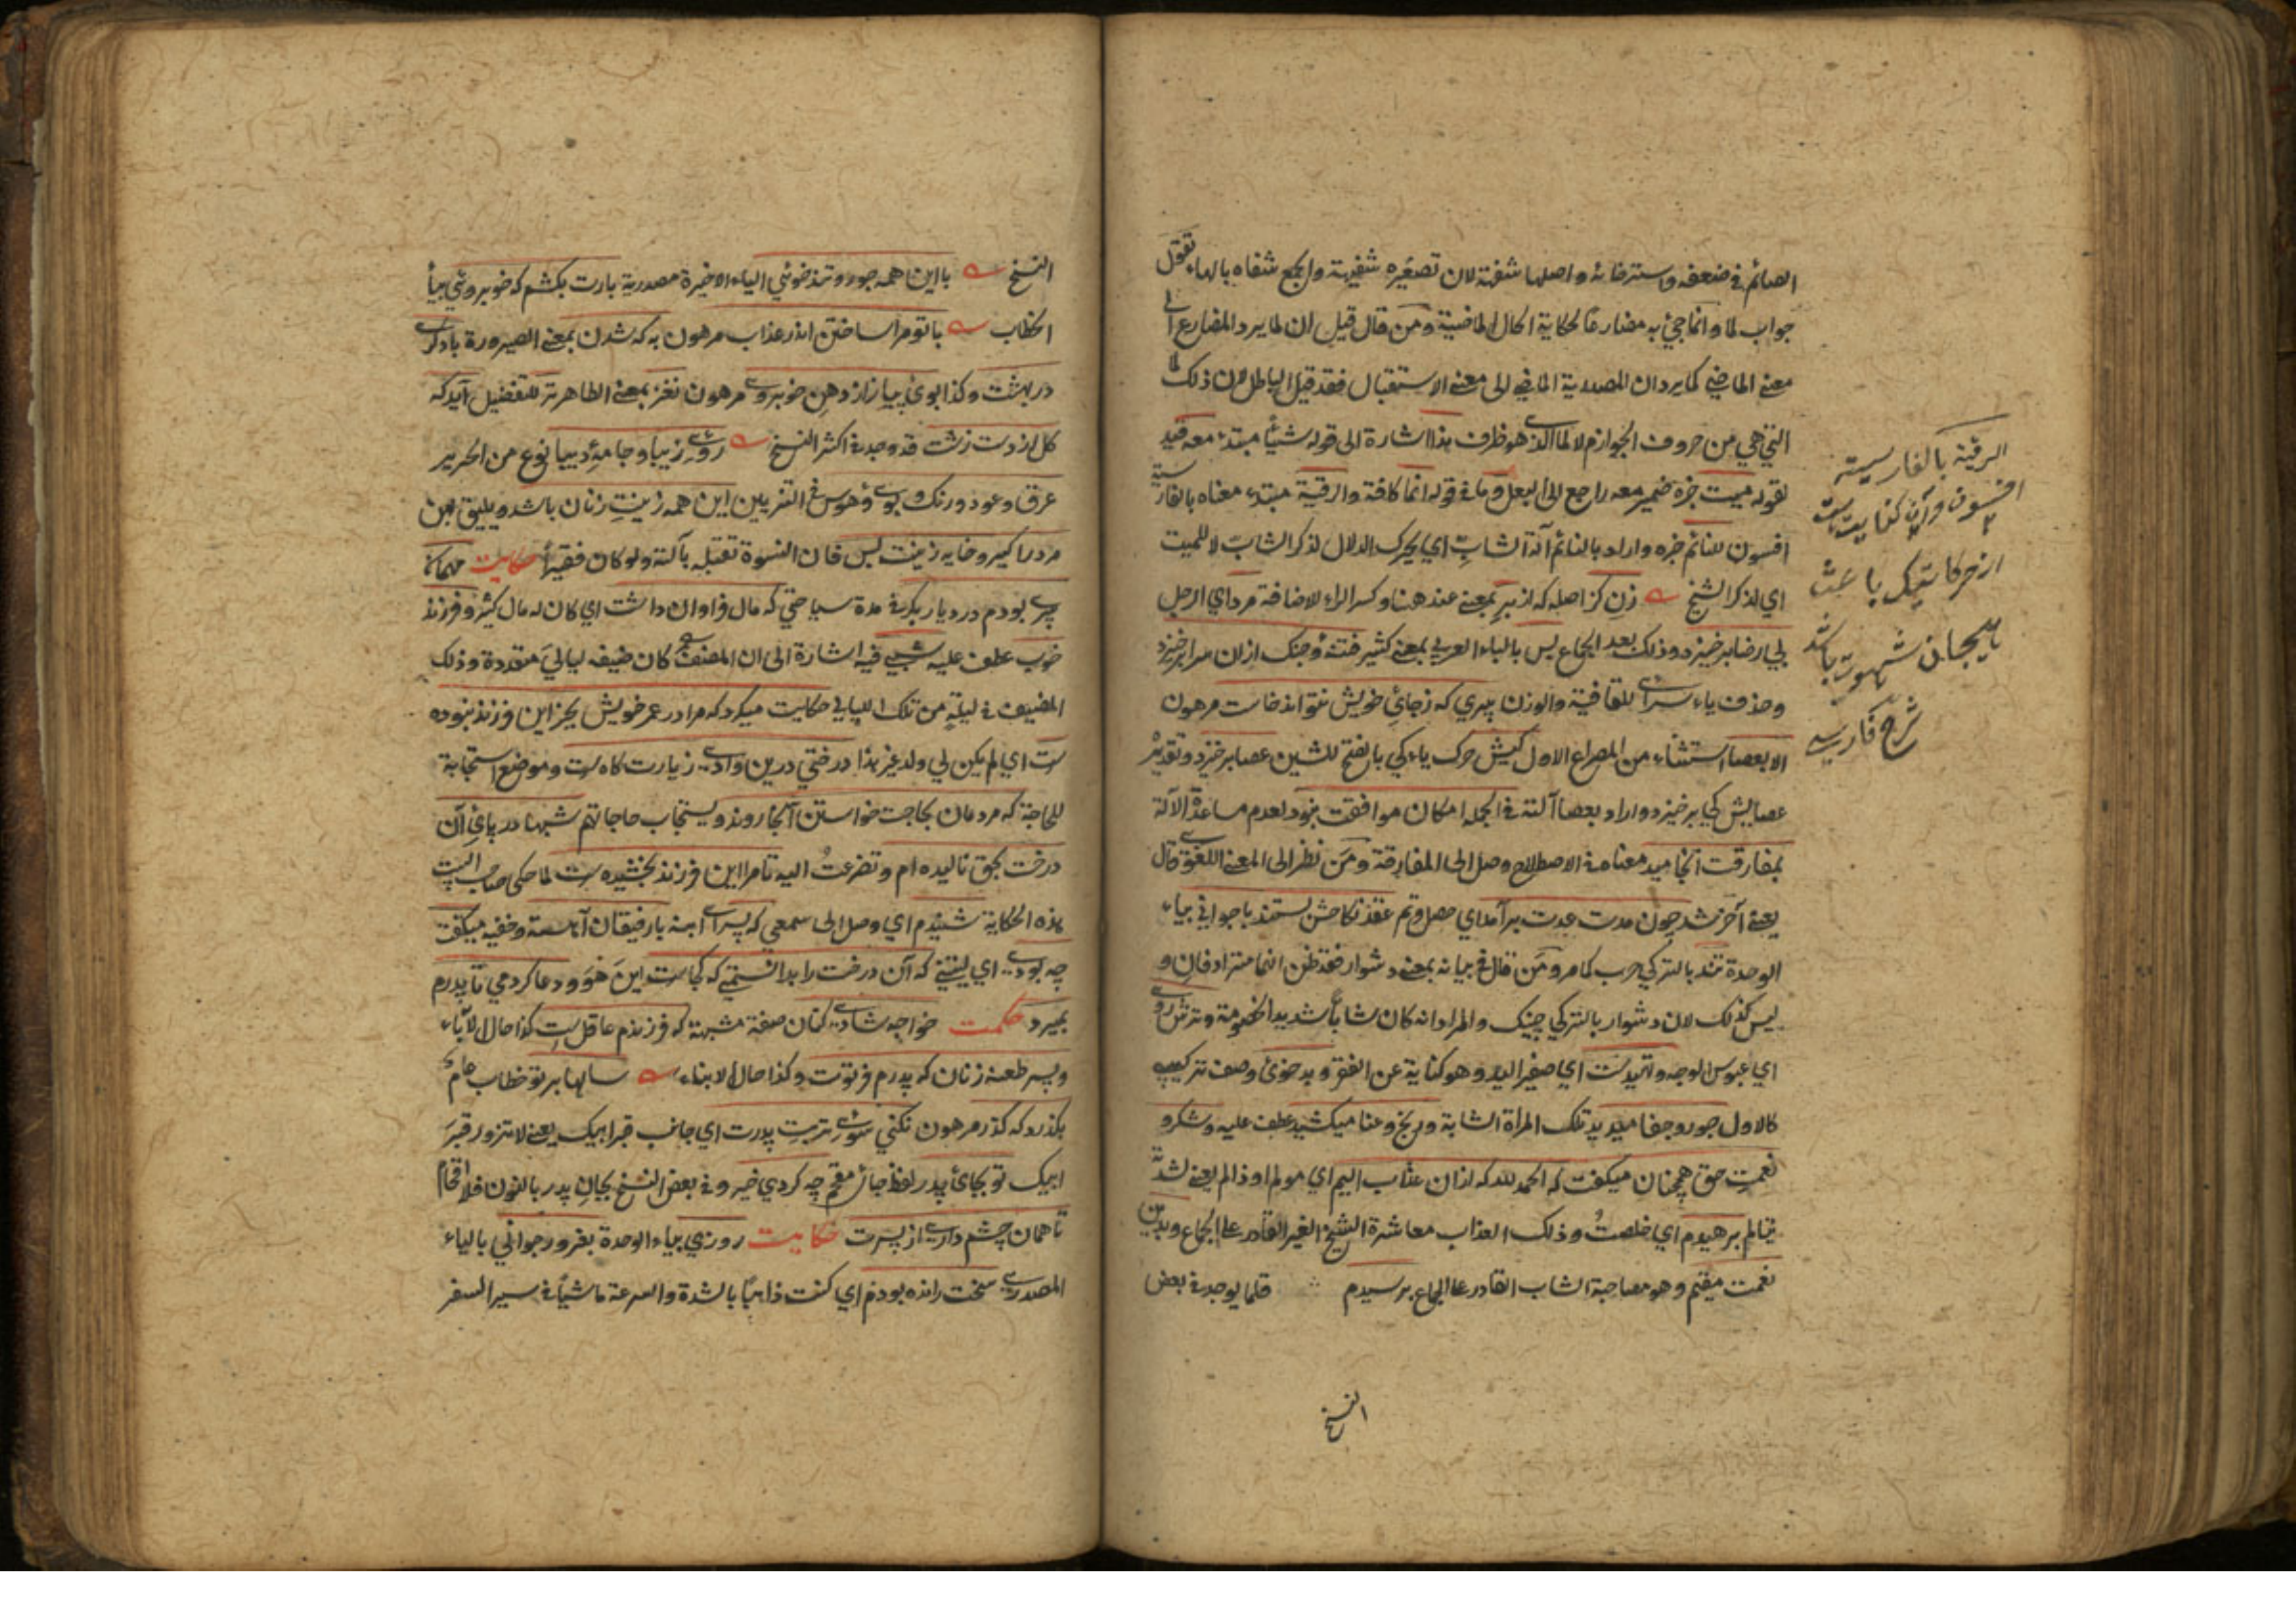 الصائم في ضعفه واسترخائه واصلها شفهة لان تصغيره شفيهة والجمع شفاه بالهاء تقول
جواب لما وانما جيئ به مضارعا لحكاية الحال الماضية ومن قال قيل ان لما يرد المضارع الى
معنى الماضي كما يرد ان المصدرية الماضي الى معنى الاستقبال فقد قيل الباطل لان ذلك لما
التي هي من حروف الجوازم لا لما الذي هو ظرف هذا اشارة الى قوله شيئا مبتدء معه قيد
لقوله ميت خبره ضمير معه راجع الى البعل وما في قوله انما كافة والرقية مبتدء معناه بالفارسية
افسون للنائم خبره واراد بالنائم آلة الشاب اي يحرك الدلال لذكر الشاب لا للميت
اي لذكر الشيخ زن كز اصله كه از بر بمعنى عند هنا وكسر الراء للاضافة مرد اي الرجل
بي رضا برخيزد وذلك بعد الجماع بس بالباء العربي بمعنى كثير فتنه و جنك ازان سرا برخيزد
وحذف ياء سراى للقافية والوزن پيري كه ز جاي خويش نتواند خاست مرهون
الا بعصا استثناء من المصراع الاول كيش حرك ياء كي بالفتح للشين عصا برخيزد وتقديره
عصايش كي برخيزد واراد بعصا آلته في الجمله امكان موافقت نبود لعدم مساعدة الآلة
بمفارقت انجاميد معناه في الاصطلاح وصل الى المفارقة ومن نظر الى المعنى اللغوي قال
يعني آخر شد چون مدت عدت برآمد اي حصل وتم عقد نكاحش بستند با جواني بياء
الوحدة تند بالتركي حرب كما مر ومن قال في بيانه بمعنى دشوار فقد ظن انهما مترادفان و
ليس كذلك لان دشوار بالتركي چتك والمراد انه كان شابا شديد الخصومة وترش روى
اي عبوس الوجه وتهيدست اي صفير اليد وهو كناية عن الفقر وبد خوى وصف تركيبي
كالاول جور وجفا ميديد تلك المرأة الشابة ورنج وعنا ميكشيد عطف عليه وشكر و
نعمت حق همچنان ميكفت كه الحمد لله كه ازان عذاب اليم اي مولم او ذا الم يعني لشدة
تألم برهيدم اي خلصت وذلك العذاب معاشرة الشيخ الغير القادر على الجماع وبدين
نعمت مقيم وهو مصاحبة الشاب القادر على الجماع برسيدم قلما يوجد في بعض
النسخ
الرقية بالفارسية
افسون وآن كنايت است
از حركاتيكه باعث
بهيجان شهوت باشد
شرح فارسي
النسخ با اين همه جور و تند خوئي الياء الاخيرة مصدرية بارت بكشم كه خوبروئي بياء
الخطاب با تو مرا ساختن اندر عذاب مرهون به كه شدن بمعنى الصيرورة با دكرى
در بهشت وكذا بوى پياز از دهن خوبروى مرهون نغز بمعنى الطاهر تر للتفضيل آيد كه
كل از دست زشت قد وجد في اكثر النسخ روى زيبا وجامه ديبا نوع من الحرير
عرق وعود ورنك وبوى وهوس في التزيين اين همه زينت زنان باشد ويليق بهن
مرد را كير وخايه زينت بس فان النسوة تقبله بآلته ولو كان فقيرا حكايت مهمان
پيرى بودم در ديار بكر في مدة سياحتي كه مال فراوان داشت اي كان له مال كثير وفرزند
خوب عطف عليه شبي فيه اشارة الى ان المصنف كان ضيفه ليالي متعددة وذلك
المضيف في ليلة من تلك الليالي حكايت ميكرد كه مرا در عمر خويش بجز اين فرزند نبوده
ست اي لم يكن لي ولد غير هذا درختي درين وادى زيارت كاه ست وموضع استجابة
للحاجة كه مردمان بحاجت خواستن آنجا روند ويستجاب حاجاتهم شبها در پاي آن
درخت بحق ناليده ام وتضرعت اليه تا مرا اين فرزند بخشيده ست لما حكى صاحب البيت
هذه الحكاية شنيدم اي وصل الى سمعي كه پسراى ابنه با رفيقان آهسته وخفيه ميكفت
چه بودى اي ليتني كه آن درخت را بدانستمى كه كجاست اين هو و دعا كردمي تا پدرم
بميرد حكمت خواجه شادى كنان صفة مشبهة كه فرزندم عاقل ست كذا حال الآباء
وپسر طعنه زنان كه پدرم فرتوت وكذا حال الابناء سالها بر تو خطاب عام
بكذرد كه كذر مرهون نكني سوى تربت پدرت اي جانب قبر ابيك يعني لا تزور قبر
ابيك تو بجاى پدر لفظ جاى مقحم چه كردي خير وفي بعض النسخ بجان پدر بالنون فلا اقحام
تا همان چشم دارى از پسرت حكايت روزي بياء الوحدة بغرور جواني بالياء
المصدرى سخت رانده بودم اي كنت ذاهبا بالشدة والسرعة ماشيا في سير السفر